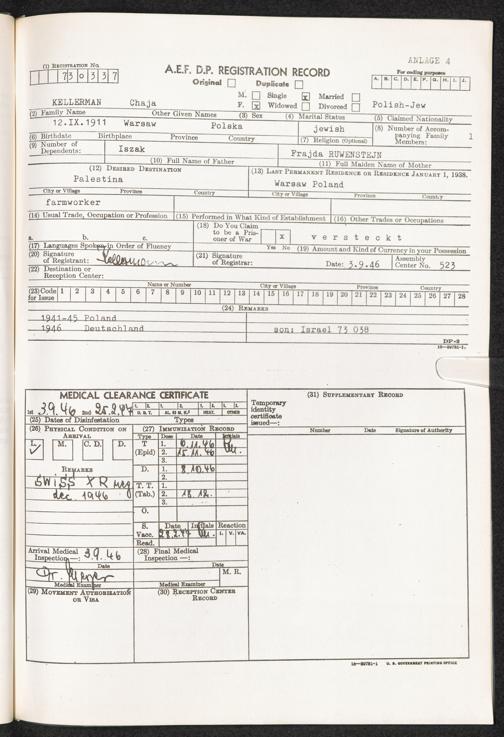 ANLAGE 4
(1) REGISTRATION NO.
730337
A.E.F. D.P. REGISTRATION RECORD
For coding purposes
Original Duplicate
A. B. C. D. E. F. G. H. I. J.
M. Single x Married
KELLERMAN Chaja F. x Widowed Divorced Polish-Jew
(2) Family Name Other Given Names (3) Sex (4) Marital Status (5) Claimed Nationality
12.IX.1911 Warsaw Polska jewish
(6) Birthdate Birthplace Province Country (7) Religion (Optional)
(8) Number of Accompanying Family Members: 1
(9) Number of Dependents: Iszak Frajda RUWENSTEJN
(10) Full Name of Father (11) Full Maiden Name of Mother
(12) DESIRED DESTINATION (13) LAST PERMANENT RESIDENCE OR RESIDENCE JANUARY 1, 1938.
Palestina Warsaw Poland
City or Village Province Country City or Village Province Country
farmworker
(14) Usual Trade, Occupation or Profession (15) Performed in What Kind of Establishment (16) Other Trades or Occupations
(18) Do You Claim to be a Prisoner of War x versteckt
a. b. c.
(17) Languages Spoken in Order of Fluency Yes No (19) Amount and Kind of Currency in your Possession
(20) Signature of Registrant: Kellermann (21) Signature of Registrar: Date: 3.9.46 Assembly Center No. 523
(22) Destination or Reception Center:
Name or Number City or Village Province Country
(23) Code for Issue 1 2 3 4 5 6 7 8 9 10 11 12 13 14 15 16 17 18 19 20 21 22 23 24 25 26 27 28
(24) REMARKS
1941-45 Poland
1946 Deutschland son: Israel 73 038
DP-2
16-39781-1
MEDICAL CLEARANCE CERTIFICATE
1st 3.9.46 2nd 25.2.47
(25) Dates of Disinfestation Types
(26) PHYSICAL CONDITION ON ARRIVAL
I. M. C.D. D.
REMARKS
SWISS XR neg
dec. 1946
(27) IMMUNIZATION RECORD
Type Dose Date Initials
T (Epid) 1.
2. 15.11.46
3.
D. 1. 8.10.46
2.
T. T. (Tab.) 1.
2. 18.12.
3.
O.
S. Date Initials Reaction
Vacc. 28.2.47 I. V. VA.
Read.
Arrival Medical Inspection—: 3.9.46
Date
Dr.
Medical Examiner
(28) Final Medical Inspection —:
Date
M. R.
Medical Examiner
(29) MOVEMENT AUTHORIZATION OR VISA
(30) RECEPTION CENTER RECORD
(31) SUPPLEMENTARY RECORD
Temporary identity certificate issued—:
Number Date Signature of Authority
16-39781-1 U. S. GOVERNMENT PRINTING OFFICE